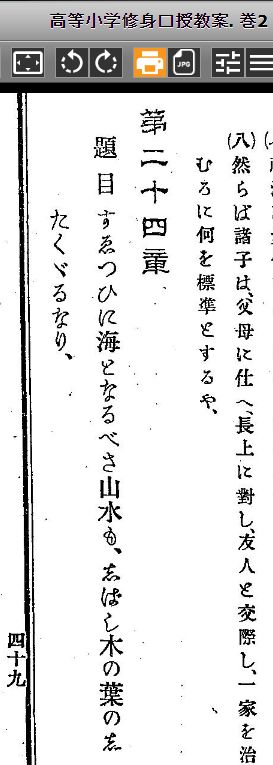 高等小学修身口授教案. 巻2
JPG
(八)然らば諸子は、父母に仕へ、長上に對し、友人と交際し、一家を治
むるに何を標準とするや、
第二十四章
題目 すゑつひに海となるべき山水も、志ばし木の葉の志
たくゞるなり、
四十九